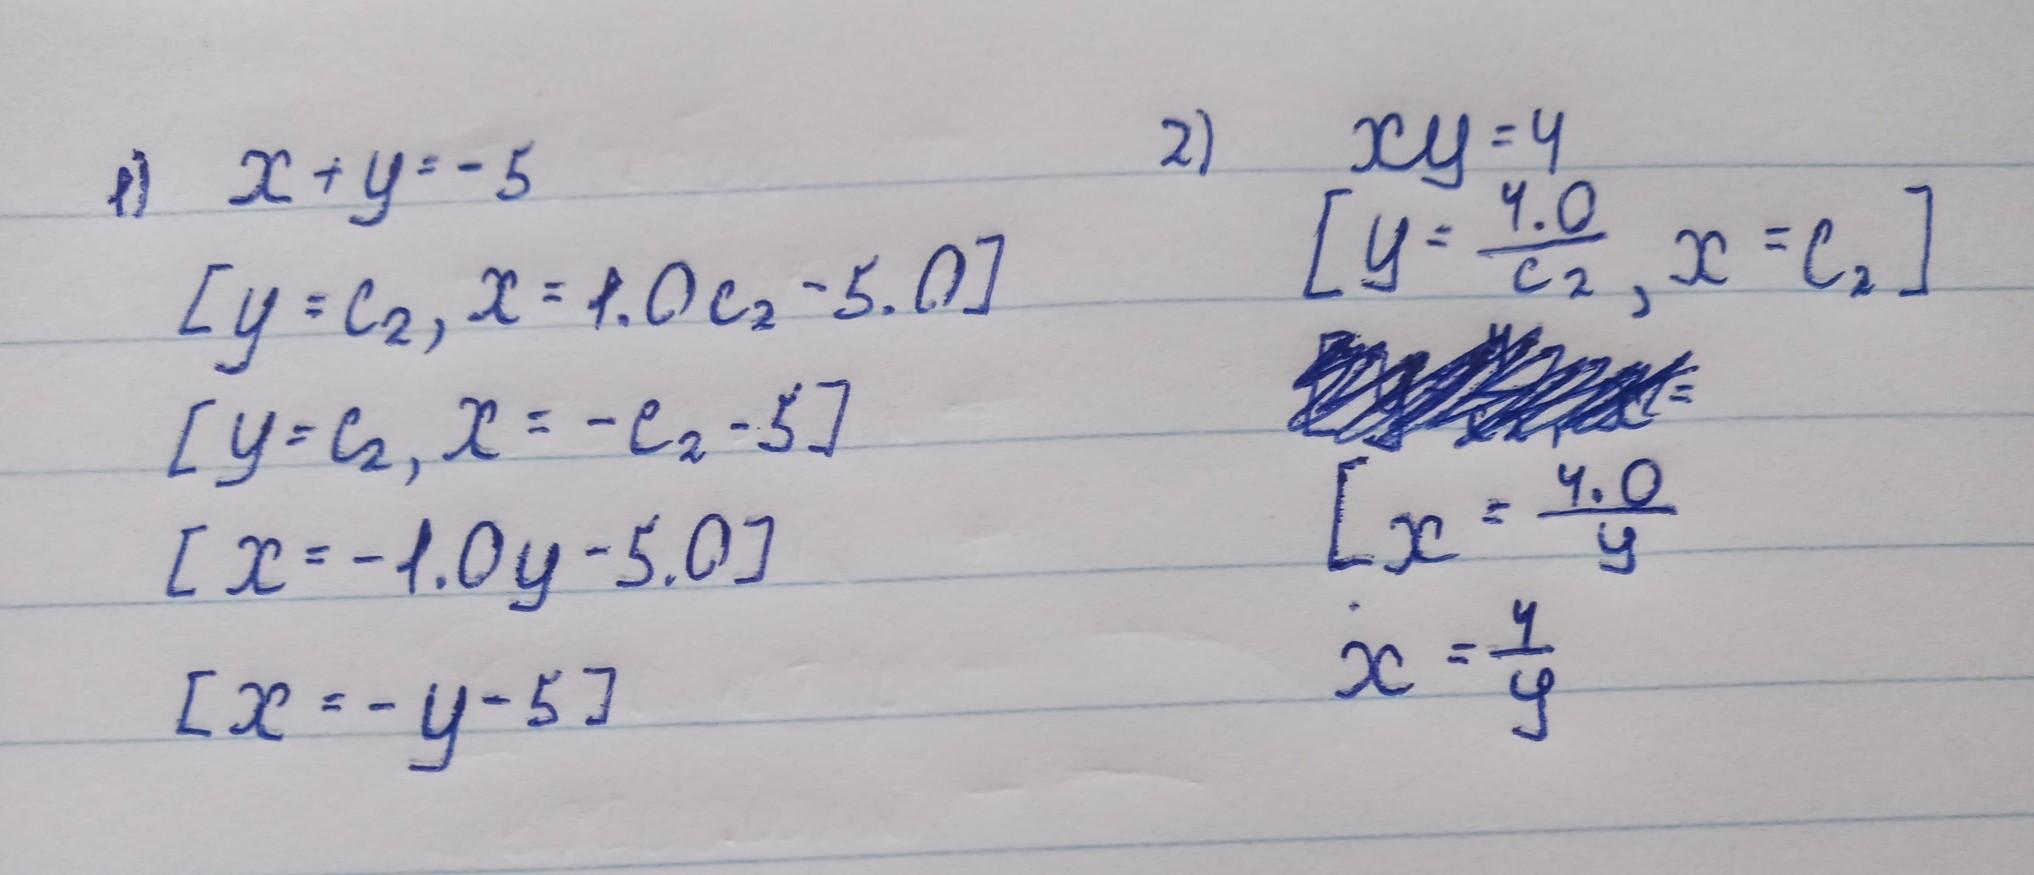 1) x + y = -5
[y = c₂, x = 1.0c₂ - 5.0]
[y = c₂, x = -c₂ - 5]
[x = -1.0y - 5.0]
[x = -y - 5]
2) xy = 4
[y = 4.0/c₂, x = c₂]
[x = 4.0/y
x = 4/y